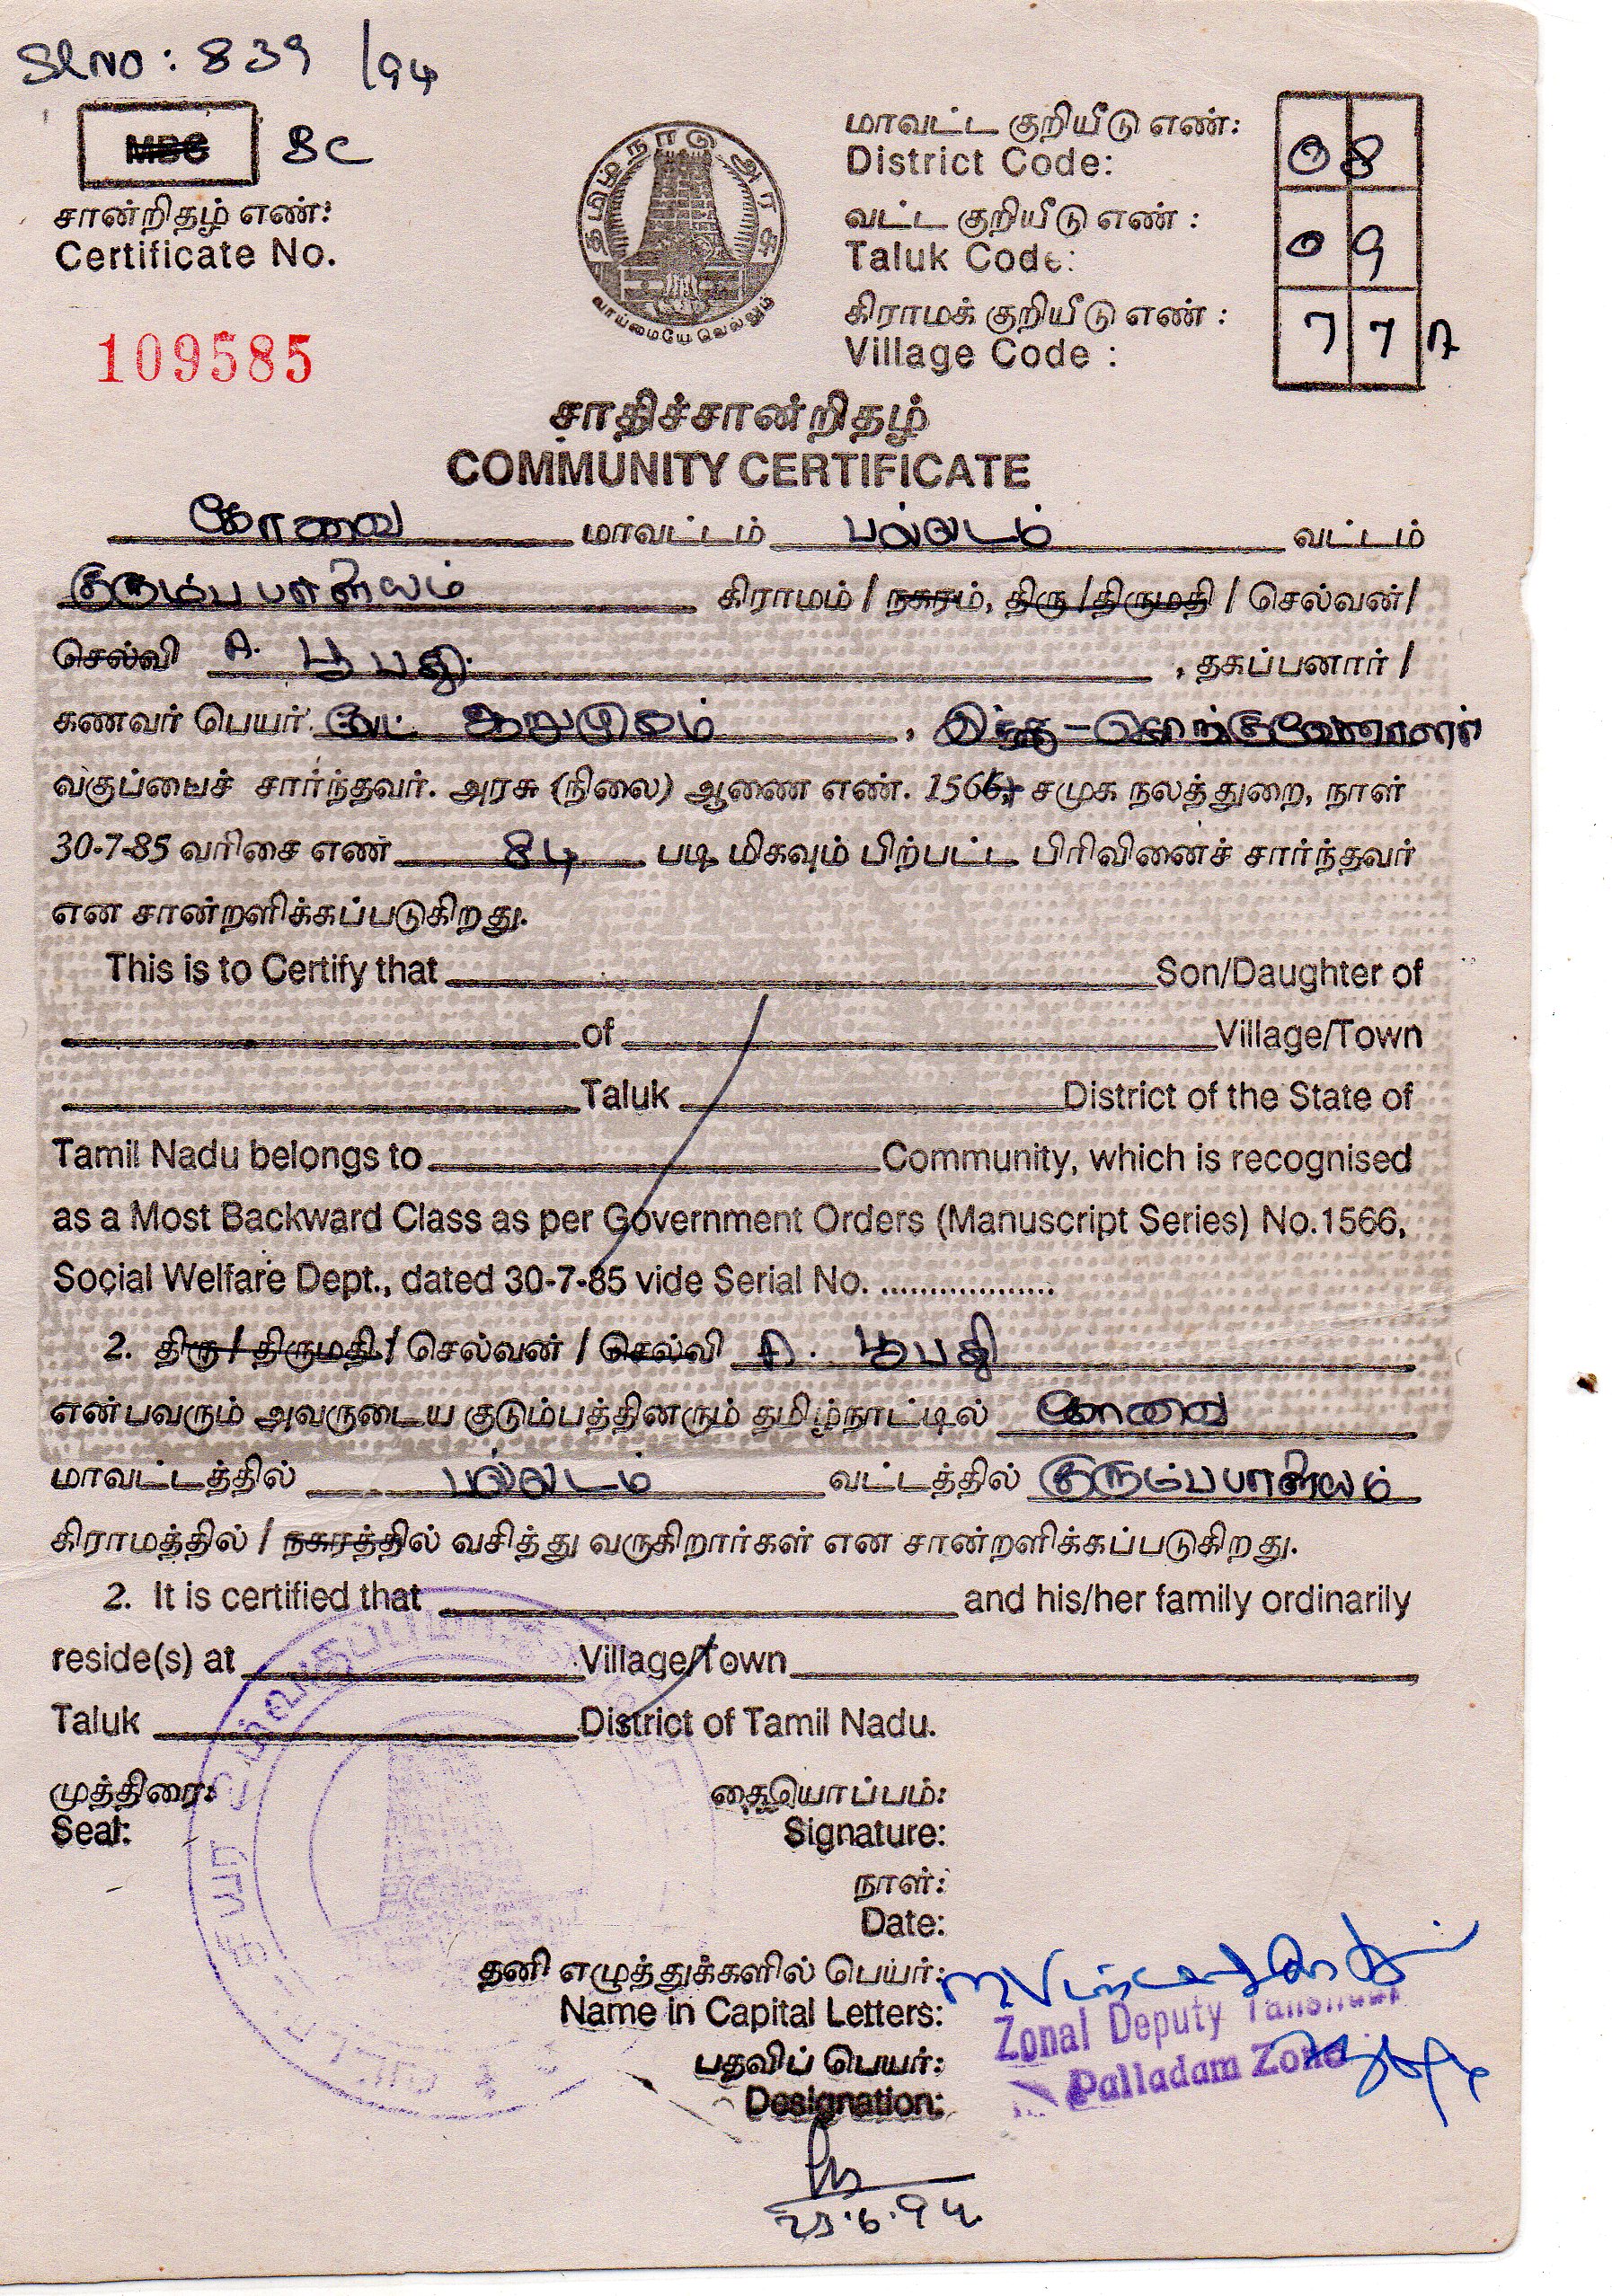 Sl No: 839 /94
MBC BC
சான்றிதழ் எண்:
Certificate No.
109585
தமிழ்நாடு அரசு
வாய்மையே வெல்லும்
மாவட்ட குறியீடு எண்:
District Code: 08
வட்ட குறியீடு எண் :
Taluk Code: 09
கிராமக் குறியீடு எண் :
Village Code : 77A
சாதிச்சான்றிதழ்
COMMUNITY CERTIFICATE
கோவை மாவட்டம் பல்லடம் வட்டம்
குரும்பபாளையம் கிராமம் / நகரம், திரு / திருமதி / செல்வன் /
செல்வி A. பூபதி , தகப்பனார் /
கணவர் பெயர் ஆறுமுகம் , இந்து - கொங்குவேளாளர்
வகுப்பைச் சார்ந்தவர். அரசு (நிலை) ஆணை எண். 1566, சமூக நலத்துறை, நாள்
30-7-85 வரிசை எண் 84 படி மிகவும் பிற்பட்ட பிரிவினைச் சார்ந்தவர்
என சான்றளிக்கப்படுகிறது.
This is to Certify that Son/Daughter of
of Village/Town
Taluk District of the State of
Tamil Nadu belongs to Community, which is recognised
as a Most Backward Class as per Government Orders (Manuscript Series) No.1566,
Social Welfare Dept., dated 30-7-85 vide Serial No. ..................
2. திரு / திருமதி / செல்வன் / செல்வி A. பூபதி
என்பவரும் அவருடைய குடும்பத்தினரும் தமிழ்நாட்டில் கோவை
மாவட்டத்தில் பல்லடம் வட்டத்தில் குரும்பபாளையம்
கிராமத்தில் / நகரத்தில் வசித்து வருகிறார்கள் என சான்றளிக்கப்படுகிறது.
2. It is certified that and his/her family ordinarily
reside(s) at Village/Town
Taluk District of Tamil Nadu.
முத்திரை:
Seal:
கையொப்பம்:
Signature:
நாள்:
Date:
தனி எழுத்துக்களில் பெயர்:
Name in Capital Letters:
பதவிப் பெயர்:
Designation:
Zonal Deputy Tahsildar
Palladam Zone
23.6.94